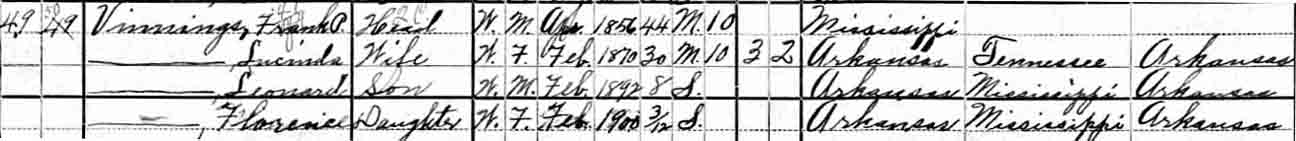 49 49 Vinnings, Frank P. Head W. M. Apr. 1856 44 M. 10 Mississippi
——— , Lucinda Wife W. F. Feb. 1870 30 M. 10 3 2 Arkansas Tennessee Arkansas
——— , Leonard Son W. M. Feb. 1892 8 S. Arkansas Mississippi Arkansas
——— , Florence Daughter W. F. Feb. 1900 3/12 S. Arkansas Mississippi Arkansas